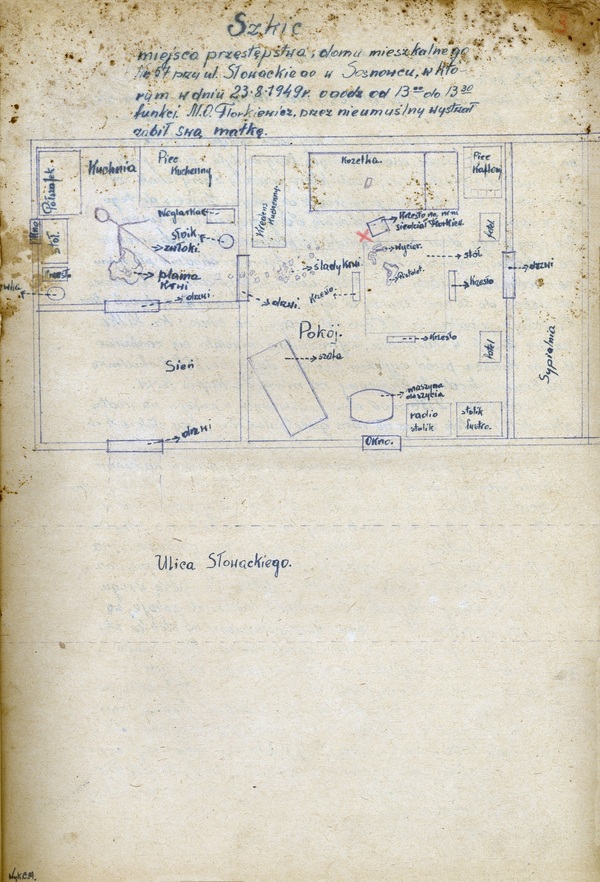 Szkic
miejsca przestępstwa; domu mieszkalnego
№ 67 przy ul. Słowackiego w Sosnowcu, w któ-
rym w dniu 23-8-1949r. o godz od 13⁰⁰ do 13³⁰
funkcj. M.O. Florkiewicz, przez nieumyślny wystrzał
zabił swą matkę.
Kuchnia
Piec
Kuchenny
Węglarka
Stoik
zwłoki
plama
krwi
drzwi
stół
Krzesło
Kredens
Kuchenny
Kozetka.
Piec
Kaflowy
Krzesło na nim
siedział Florkiew.
Wycior.
Pistolet
stół
fotel
ślady krwi
drzwi.
Krzesło
Krzesło
drzwi
Krzesło
fotel
Pokój.
szafa
maszyna
do szycia
radio
stolik
stolik
lustro.
Okno.
Sypialnia
Sień
drzwi
Ulica Słowackiego.